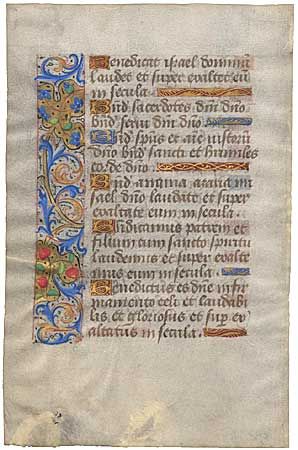 Benedicat israel dominū
laudet et super exaltet eū
in secula.
Bñd sacerdotes dñi dño
bñd servi dñi dño.
Bñd spūs et aīe iustorū
dño bñd sancti et humiles
corde dño.
Bñd anania azaria mi
sael dño laudate et super
exaltate eum in secula.
Bñdicamus patrem et
filium cum sancto spiritu
laudemus et super exalte
mus eum in secula.
Benedictus es dñe in fir
mamento celi et laudabi
lis et gloriosus et sup ex
altatus in secula.